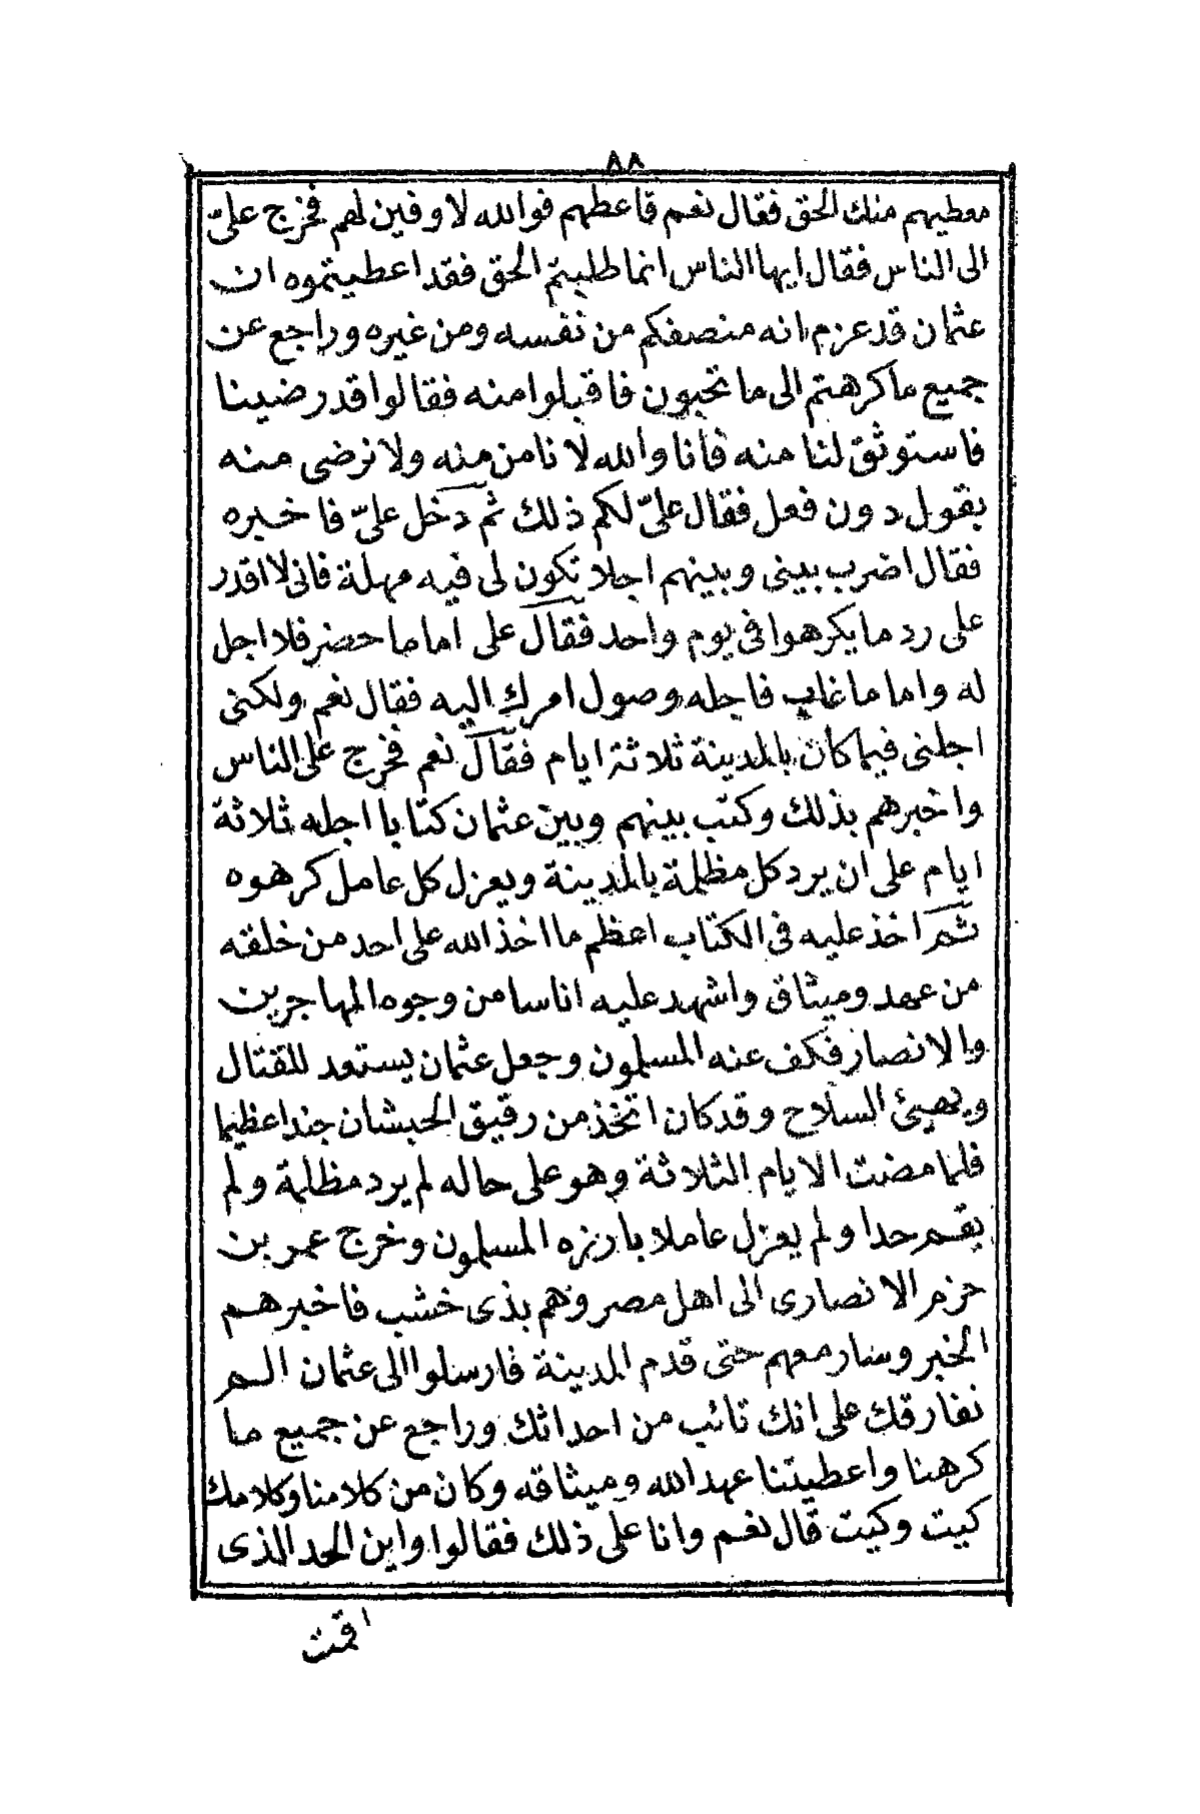 ٨٨
معطيهم منك الحق فقال نعم فاعطهم فوالله لاوفين لهم فخرج علىّ
الى الناس فقال ايها الناس انما طلبتم الحق فقد اعطيتموه ان
عثمان قد عزم انه منصفكم من نفسه ومن غيره وراجع عن
جميع ما كرهتم الى ما تحبون فاقبلوا منه فقالوا قد رضينا
فاستوثق لنا منه فانا والله لا نامن منه ولا نرضى منه
بقول دون فعل فقال علىّ لكم ذلك ثم دخل علىّ فاخبره
فقال اضرب بينى وبينهم اجلا تكون لى فيه مهلة فانى لا اقدر
على رد ما يكرهوا فى يوم واحد فقال على اما ما حضر فلا اجل
له واما ما غاب فاجله وصول امرك اليه فقال نعم ولكنى
اجلنى فيما كان بالمدينة ثلاثة ايام فقال نعم فخرج على الناس
واخبرهم بذلك وكتب بينهم وبين عثمان كتابا اجله ثلاثة
ايام على ان يرد كل مظلمة بالمدينة ويعزل كل عامل كرهوه
ثم اخذ عليه فى الكتاب اعظم ما اخذ الله على احد من خلقه
من عهد وميثاق واشهد عليه اناسا من وجوه المهاجرين
والانصار فكف عنه المسلمون وجعل عثمان يستعد للقتال
ويهيئ السلاح وقد كان اتخذ من رقيق الحبشان جندا عظيما
فلما مضت الايام الثلاثة وهو على حاله لم يرد مظلمة ولم
يقم حدا ولم يعزل عاملا بارزه المسلمون وخرج عمر بن
حزم الانصارى الى اهل مصر وهم بذى خشب فاخبرهم
الخبر وسار معهم حتى قدم المدينة فارسلوا الى عثمان الم
نفارقك على انك تائب من احداثك وراجع عن جميع ما
كرهنا واعطيتنا عهد الله وميثاقه وكان من كلامنا وكلامك
كيت وكيت قال نعم وانا على ذلك فقالوا واين الحد الذى
اقمت